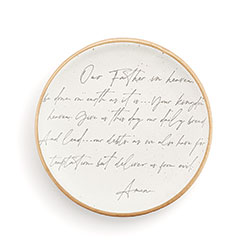 Our Father in heaven
be done on earth as it is...Your kingdom
heaven Give us this day our daily bread
And lead...our debts as we also have for
temptation but deliver us from evil.
Amen